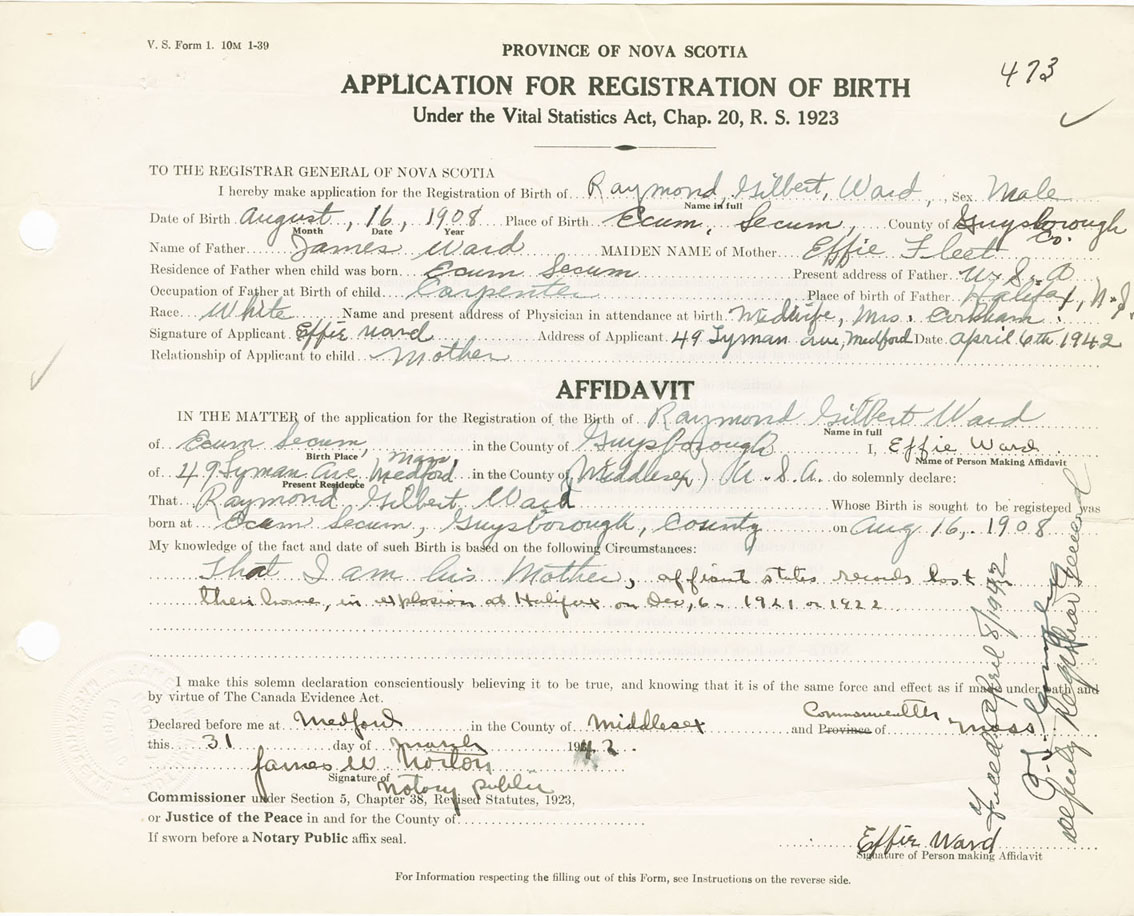 V. S. Form 1. 10M 1-39
PROVINCE OF NOVA SCOTIA
473
APPLICATION FOR REGISTRATION OF BIRTH
Under the Vital Statistics Act, Chap. 20, R. S. 1923
TO THE REGISTRAR GENERAL OF NOVA SCOTIA
I hereby make application for the Registration of Birth of Raymond, Gilbert, Ward, Sex Male
Name in full
Date of Birth August, 16, 1908 Place of Birth Ecum, Secum, County of Guysborough Co.
Month Date Year
Name of Father James Ward MAIDEN NAME of Mother Effie Fleet
Residence of Father when child was born Ecum Secum Present address of Father U. S. A
Occupation of Father at Birth of child Carpenter Place of birth of Father Halifax, N.S.
Race White Name and present address of Physician in attendance at birth Midwife, Mrs.
Signature of Applicant Effie Ward Address of Applicant 49 Lyman Ave, Medford Date April 6th 1942
Relationship of Applicant to child Mother
AFFIDAVIT
IN THE MATTER of the application for the Registration of the Birth of Raymond Gilbert Ward
Name in full
of Ecum Secum, in the County of Guysborough I, Effie Ward
Birth Place Name of Person Making Affidavit
of 49 Lyman Ave, Medford Mass, in the County of (Middlesex) U. S. A. do solemnly declare:
Present Residence
That Raymond Gilbert Ward Whose Birth is sought to be registered was
born at Ecum Secum, Guysborough, County on Aug 16, 1908
My knowledge of the fact and date of such Birth is based on the following Circumstances:
That I am his Mother, affiant states records lost in
their home, in explosion at Halifax on Dec, 6 - 1921 or 1922
I make this solemn declaration conscientiously believing it to be true, and knowing that it is of the same force and effect as if made under oath and
by virtue of The Canada Evidence Act.
Declared before me at Medford in the County of Middlesex and Province of Commonwealth Mass
this 31 day of March 1942.
James W Norton
Signature of
Notary Public
Commissioner under Section 5, Chapter 38, Revised Statutes, 1923,
or Justice of the Peace in and for the County of
If sworn before a Notary Public affix seal.
Effie Ward
Signature of Person making Affidavit
For Information respecting the filling out of this Form, see Instructions on the reverse side.
Filed April 8/1942
Deputy Registrar General